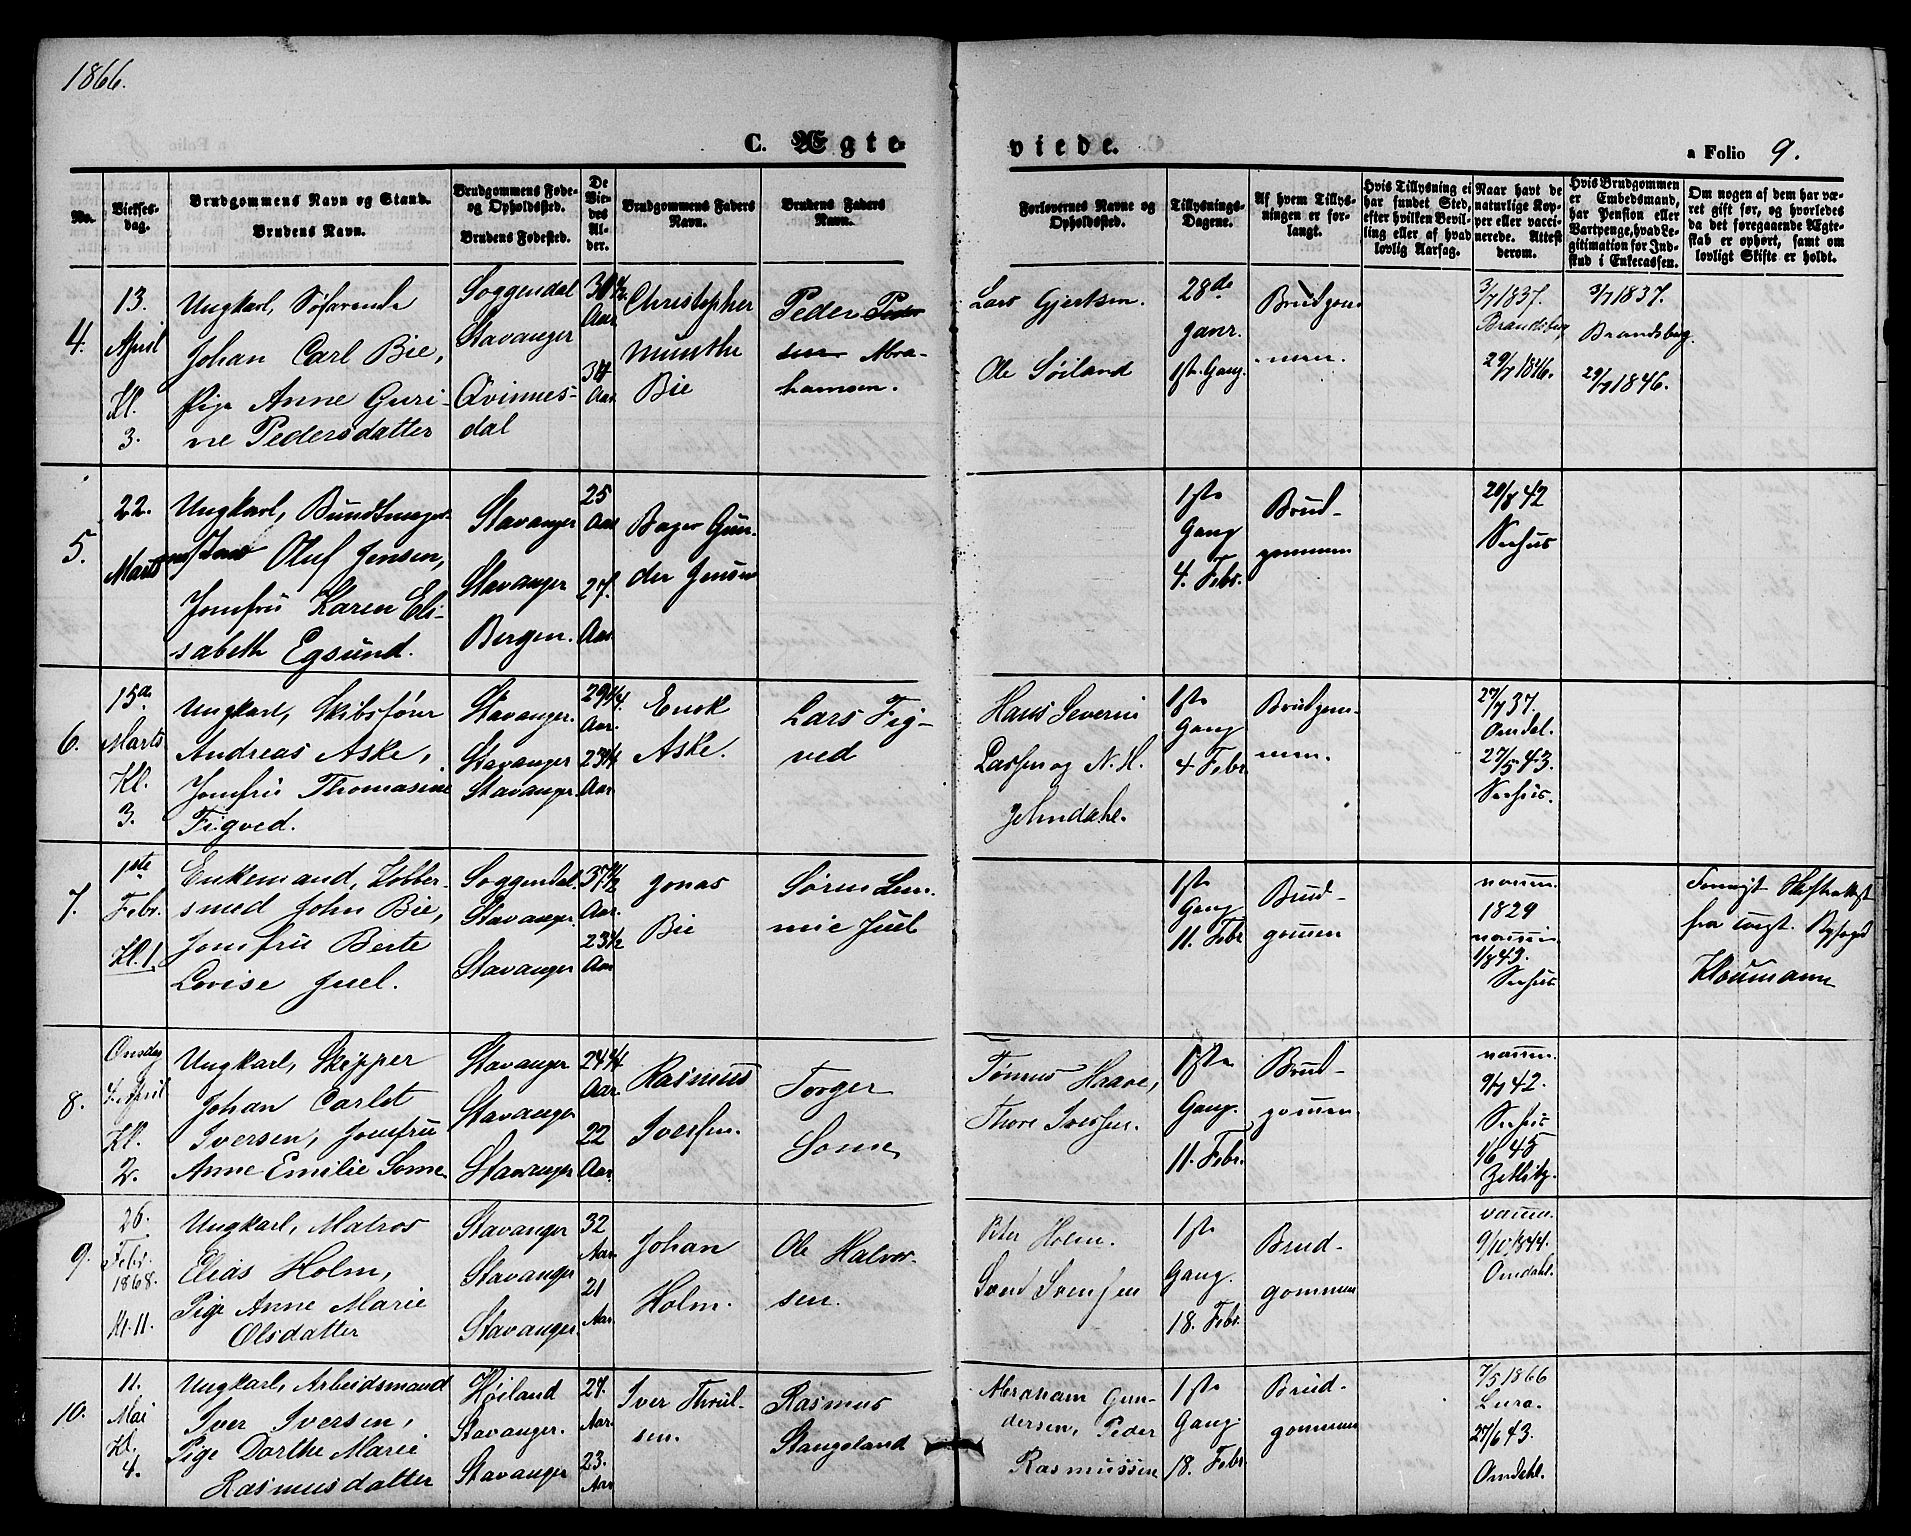 1866.
C. Ægte-
viede.
a Folio 9.
No.
Vielses-
dag.
Brudgommens Navn og Stand.
Brudens Navn.
Brudgommens Føde-
og Opholdsted.
Brudens Fødested.
De
Vie-
des
Al-
der.
Brudgommens Faders
Navn.
Brudens Faders
Navn.
Forlovernes Navne og
Opholdsted.
Tillysnings-
Dagene.
Af hvem Tillys-
ningen er for-
langt.
Hvis Tillysning ei
har fundet Sted,
efter hvilken Bevil-
ling eller af hvad
lovlig Aarsag.
Naar havt de
naturlige Kop-
per eller vacci-
nerede. Attest
derom.
Hvis Brudgommen
er Embedsmand,
har Pension eller
Vartpenge, hvad Le-
gitimation for Ind-
skud i Enkecassen.
Om nogen af dem har væ-
ret gift før, og hvorledes
da det foregaaende Ægte-
skab er ophørt, samt om
lovligt Skifte er holdt.
4.
13.
April
Kl.
3.
Ungkarl, Søfarende
Johan Carl Bie,
Pige Anne Guri-
ne Pedersdatter
Soggendal
Stavanger
Qvinnes-
dal
Aar
Aar
Christopher
Munthe
Bie
Peder Peder
sen Abra-
hamsen.
Lars Gjertsen.
Ole Søiland
28de
Janr.
1ste Gang.
Brudgom-
men.
3/7 1837.
Brandsberg
29/7 1846.
3/7 1837.
Brandsberg
29/7 1846.
5.
22.
Marts
Ungkarl, Bundtmager-
Oluf Jensen,
Jomfru Karen Eli-
sabeth Egsund.
Stavanger
Stavanger
Bergen.
25
Aar
27.
Aar
Bager Gun-
der Jensen
1ste
Gang
4. Febr.
Brud-
gommen
20/8 42
Seehus
6.
15de
Marts
Kl.
3.
Ungkarl, Skibsfører
Andreas Aske,
Jomfru Thomasine
Figved.
Stavanger.
Stavanger
Stavanger.
29 1/4
Aar.
Aar
Enok
Aske.
Lars Fig-
ved
Hans Severin
Lassen og N. H.
1ste
Gang
4 Febr.
Brudgom-
men.
27/7 37.
Omdal.
27/5 43.
Seehus.
7.
1ste
Febr.
Kl. 1.
Enkemand, Kobber-
smed John Bie,
Jomfru Berte
Lovise Juel.
Soggendal.
Stavanger.
Stavanger
37 1/2
Aar.
23 1/2
Aar
Jonas
Bie
Søren Lem-
mic Juel
1ste
Gang
11. Febr
Brud-
gommen
1829
1/8 43.
Seehus
Skifteattest
fra
Kloumann
8.
Onsdag
4. April
Kl.
2.
Ungkarl, Skipper
Johan Carlet
Iversen, Jomfru
Anne Emilie Some
Stavanger
Stavanger
Stavanger
24 3/4
Aar.
22
Aar.
Rasmus
Iversen.
Torger
Some
Tønnes Haave,
Thore Iversen.
1ste
Gang.
11. Febr.
Brud-
gommen.
9/7 42.
Seehus
1/6 45
Zetlitz.
9.
26.
Febr.
1868.
Kl. 11.
Ungkarl, Matros
Elias Holm,
Pige Anne Marie
Olsdatter
Stavanger
Stavanger
Stavanger.
32
Aar.
21
Aar.
Johan
Holm.
Ole Halvor-
sen.
Peter Holm.
Svend Svensen
1ste
Gang.
18. Febr.
Brud-
gommen
9/10 1844.
Omdahl.
10.
11.
Mai
Kl.
4.
Ungkarl, Arbeidsmand
Iver Iversen,
Pige Dorthe Marie
Rasmusdatter
Høiland
Stavanger.
Stavanger
27.
Aar.
23.
Aar
Iver Thrul-
sen.
Rasmus
Stangeland
Abraham Gun-
dersen, Peder
Rasmussen
1ste
Gang
18. Febr
Brud-
gommen
7/5 1866
Lura.
27/6 43.
Omdahl.